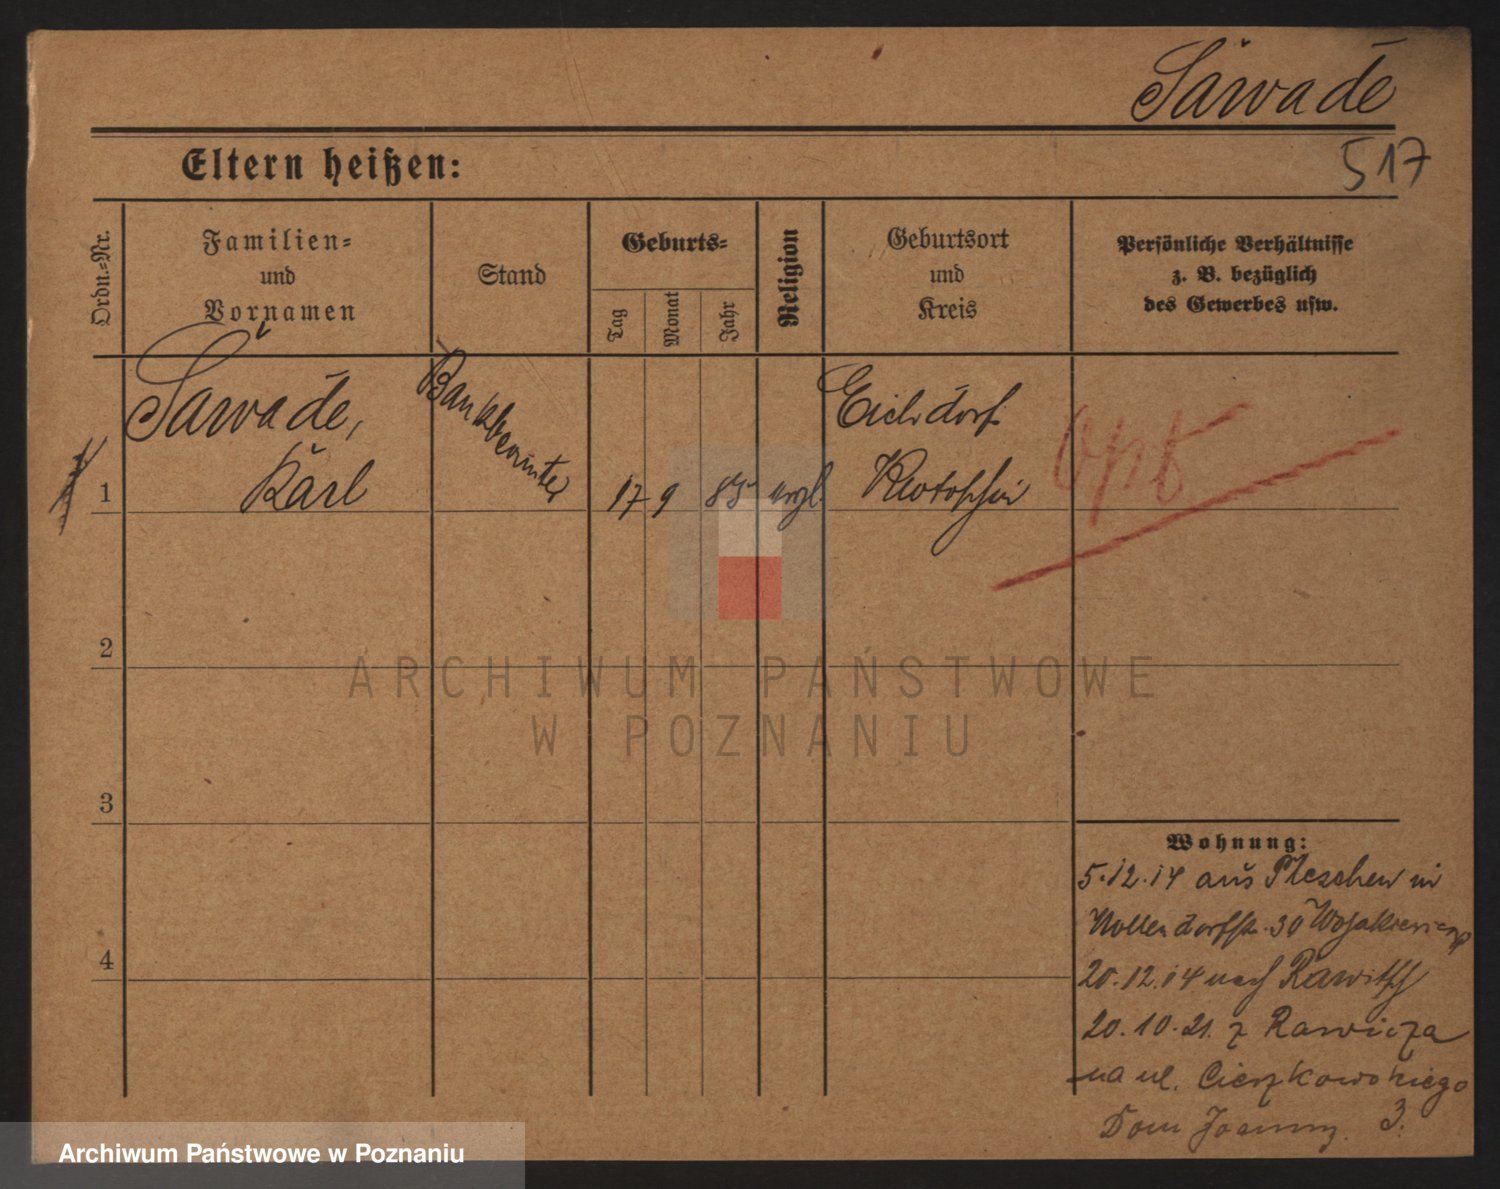 Sawade
517
Eltern heißen:
Ordn.=Nr.
Familien=
und
Vornamen
Stand
Geburts=
Tag
Monat
Jahr
Religion
Geburtsort
und
Kreis
Persönliche Verhältnisse
z. B. bezüglich
des Gewerbes usw.
1
Sawade,
Karl
Bankbeamter
17 9 85 evgl.
Eichdorf
Krotoschin
opt
2
3
4
Wohnung:
5.12.14 aus Pleschen in
Nollendorfstr. 30
20.12.14 nach Rawitsch
20.10.21. z Rawicza
na ul. Cieszkowskiego
Dom 3.
ARCHIWUM PAŃSTWOWE
W POZNANIU
Archiwum Państwowe w Poznaniu